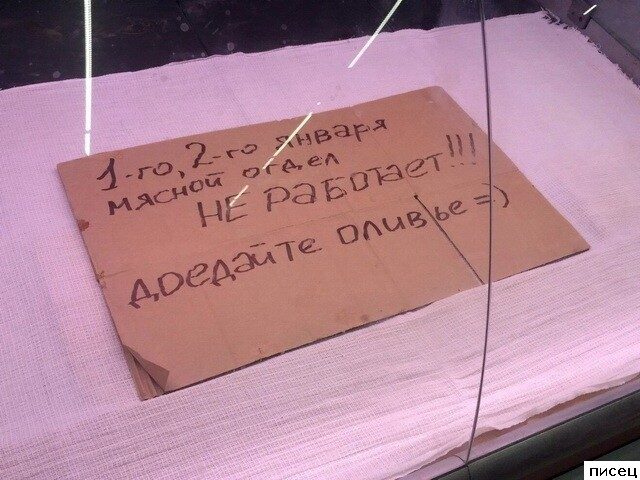 1-го, 2-го января
мясной отдел
НЕ работает!!!
доедайте оливье =)
писец